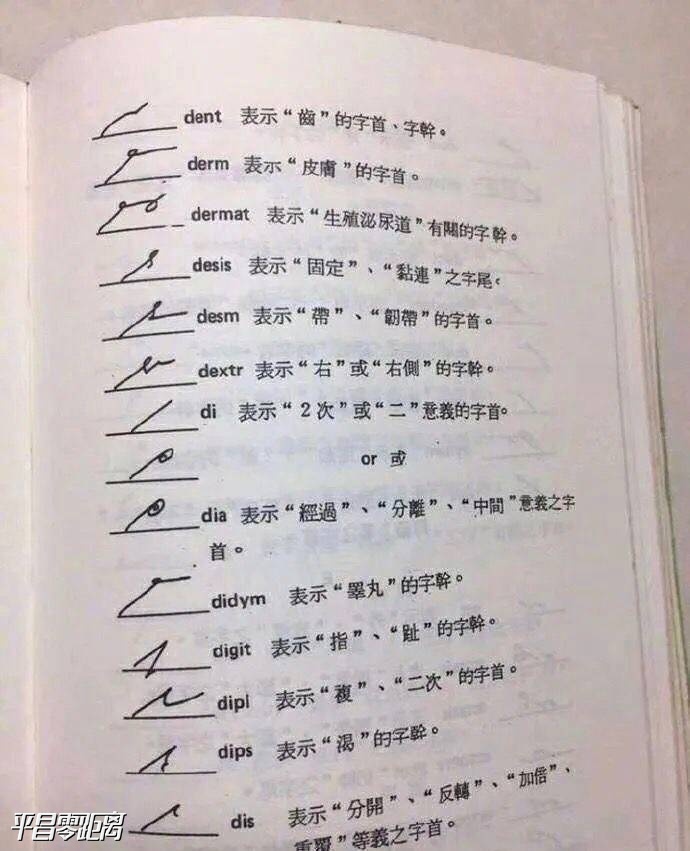 dent 表示“齒”的字首、字幹。
derm 表示“皮膚”的字首。
dermat 表示“生殖泌尿道”有關的字幹。
desis 表示“固定”、“黏連”之字尾。
desm 表示“帶”、“韌帶”的字首。
dextr 表示“右”或“右側”的字幹。
di 表示“2次”或“二”意義的字首。
or 或
dia 表示“經過”、“分離”、“中間”意義之字
首。
didym 表示“睪丸”的字幹。
digit 表示“指”、“趾”的字幹。
dipl 表示“複”、“二次”的字首。
dips 表示“渴”的字幹。
dis 表示“分開”、“反轉”、“加倍”、
重覆”等義之字首。
平昌零距离